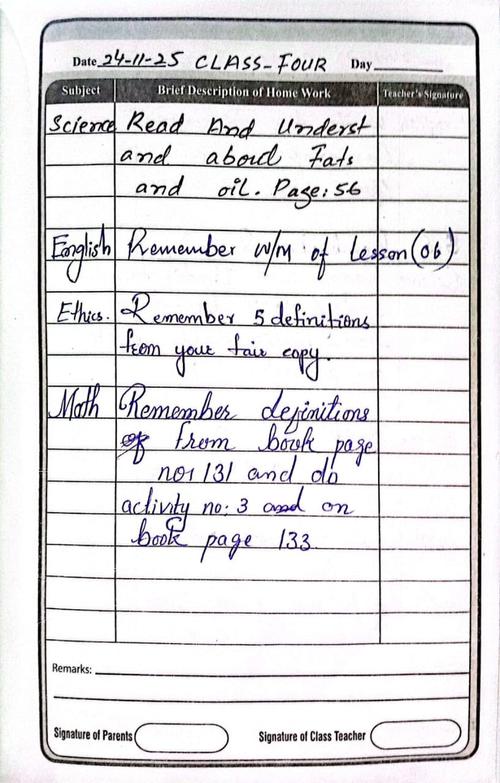 Date 24-11-25 CLASS-FOUR Day
Subject Brief Description of Home Work Teacher's Signature
Science Read And Underst
and aboud Fats
and oil. Page: 56
English Remember W/M of Lesson (06)
Ethics. Remember 5 definitions
from your fair copy.
Math Remember definitions
from book page
no: 131 and do
activity no: 3 on
book page 133
Remarks:
Signature of Parents Signature of Class Teacher